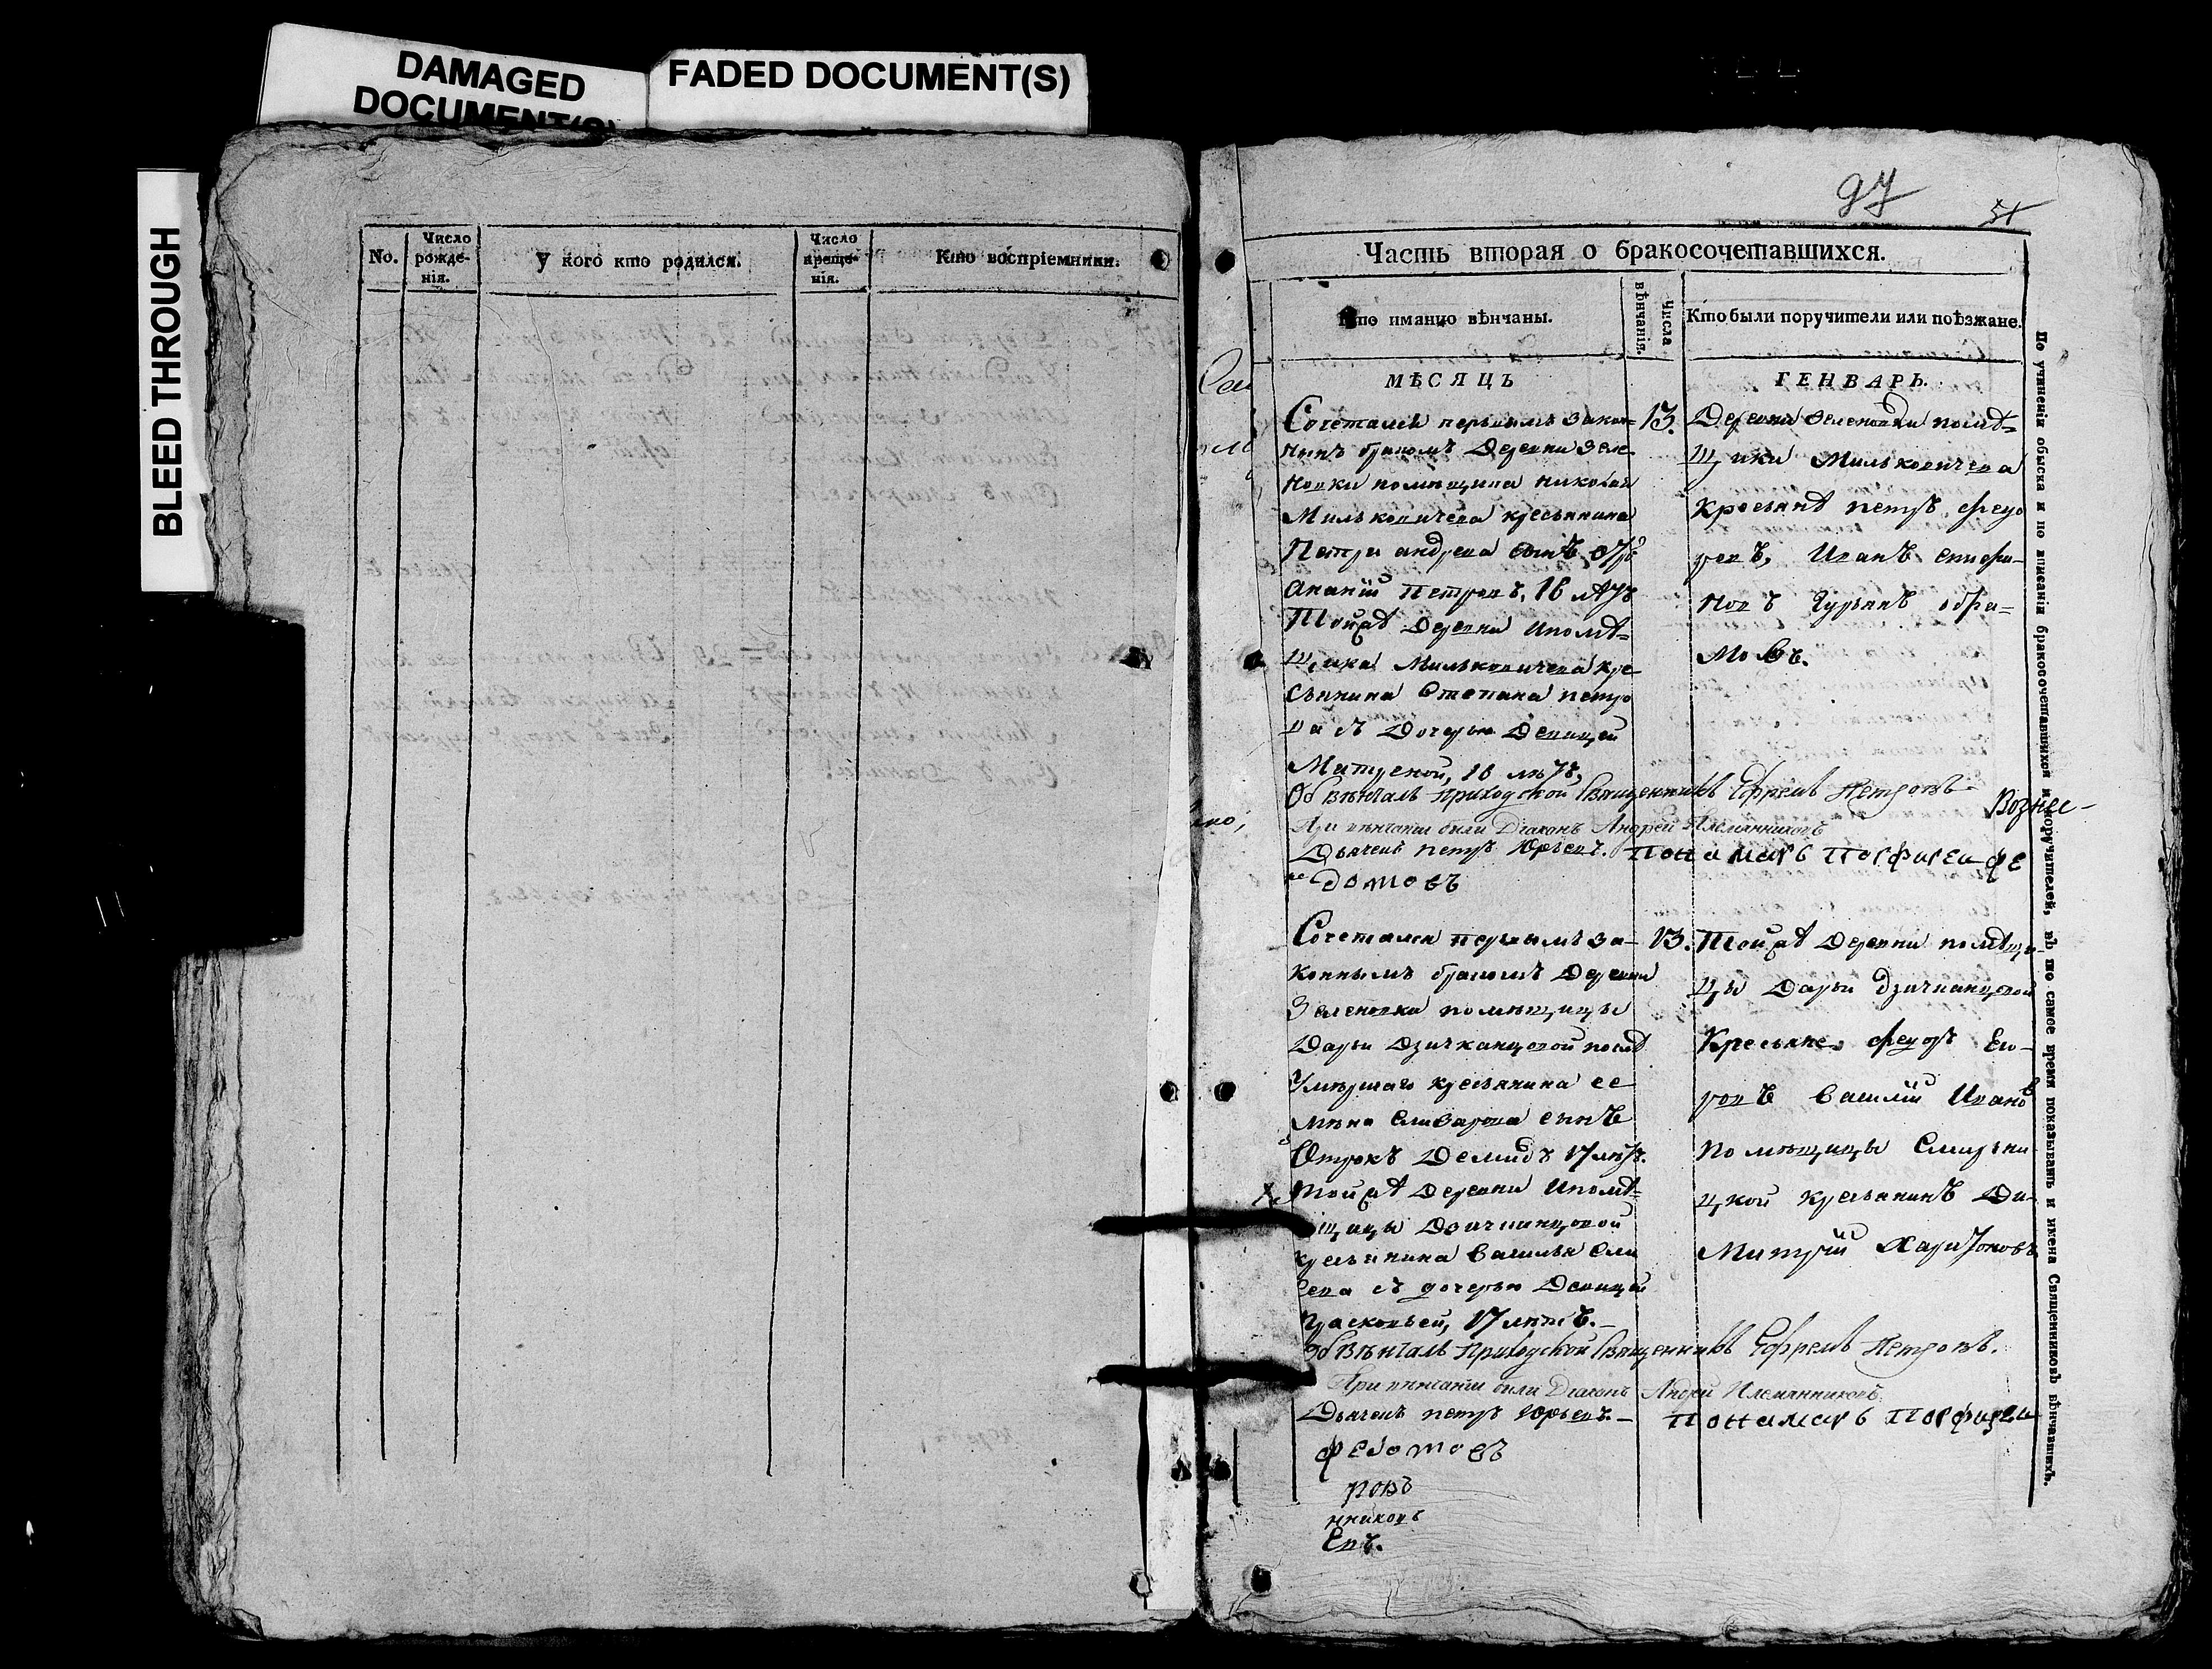 DAMAGED
DOCUMENT(S)
FADED DOCUMENT(S)
BLEED THROUGH
No.
Число
рожде-
нія.
У кого кто родился.
Число
креще-
нія.
Кто воспріемники.
97
51
Часть вторая о бракосочетавшихся.
Кто имянно вѣнчаны.
Числа
вѣнчанія.
Кто были поручители или поѣзжане.
МѢСЯЦЪ
ГЕНВАРЬ.
Сочетался первымъ закон=
нымъ бракомъ Деревни Зеле
новки помѣщика Николая
Мильковичева кресьянина
Петра андреева сынъ
Ананій Петровъ, 18 лѣтъ
Тойже Деревни ипомѣ=
щика Мильковичева кре
сьянина Степана петро
ва съ Дочерью Девицей
Матреной, 18 лѣтъ,
13.
Деревни Зеленовки помѣ=
щики Мильковичева
Кресьянѣ петръ, федо
ровъ, Иванъ
новъ Гурьянъ абра=
мовъ.
Обвѣнчалъ приходской Священникъ Ефремъ Петровъ.
Вознес-
При вѣнчаніи были Діаконъ Андрей Племянниковъ
Дьячекъ петръ Юрьевъ. Понамарь Порфирей фе
дотовъ
Сочетался первымъ за-
коннымъ бракомъ Деревни
Зеленовка помѣщицы
Дарьи Дзичканцовой послѣ
Умершаго кресьянина ее
сынъ
Отрокъ Демидъ 17 лѣтъ.
Тойже Деревни Ипомѣ=
щицы Дзичканцовой
кресьянина Василья Ели
сева съ дочерью Девицей
Прасковьей, 17 лѣтъ.-
13.
Тойже Деревни помѣщи
цы Дарьи Дзичканцовой
Кресьяне федоръ Его-
ровъ Василій Ивановъ
помѣщицы Смирни
цкой кресьянинъ Ди-
митрій Харитоновъ
Обвѣнчалъ Приходской Священникъ Ефремъ Петровъ.
При вѣнчаніи были Діаконъ Андрей Племянниковъ
Дьячекъ петръ Юрьевъ.- Понамарь Порфирей
федотовъ
ровъ
нниковъ
Евъ.
По учиненіи обыска и по вписаніи бракосочетавшихся и поручителей, въ то самое время показывать и имена Священниковъ вѣнчавшихъ.